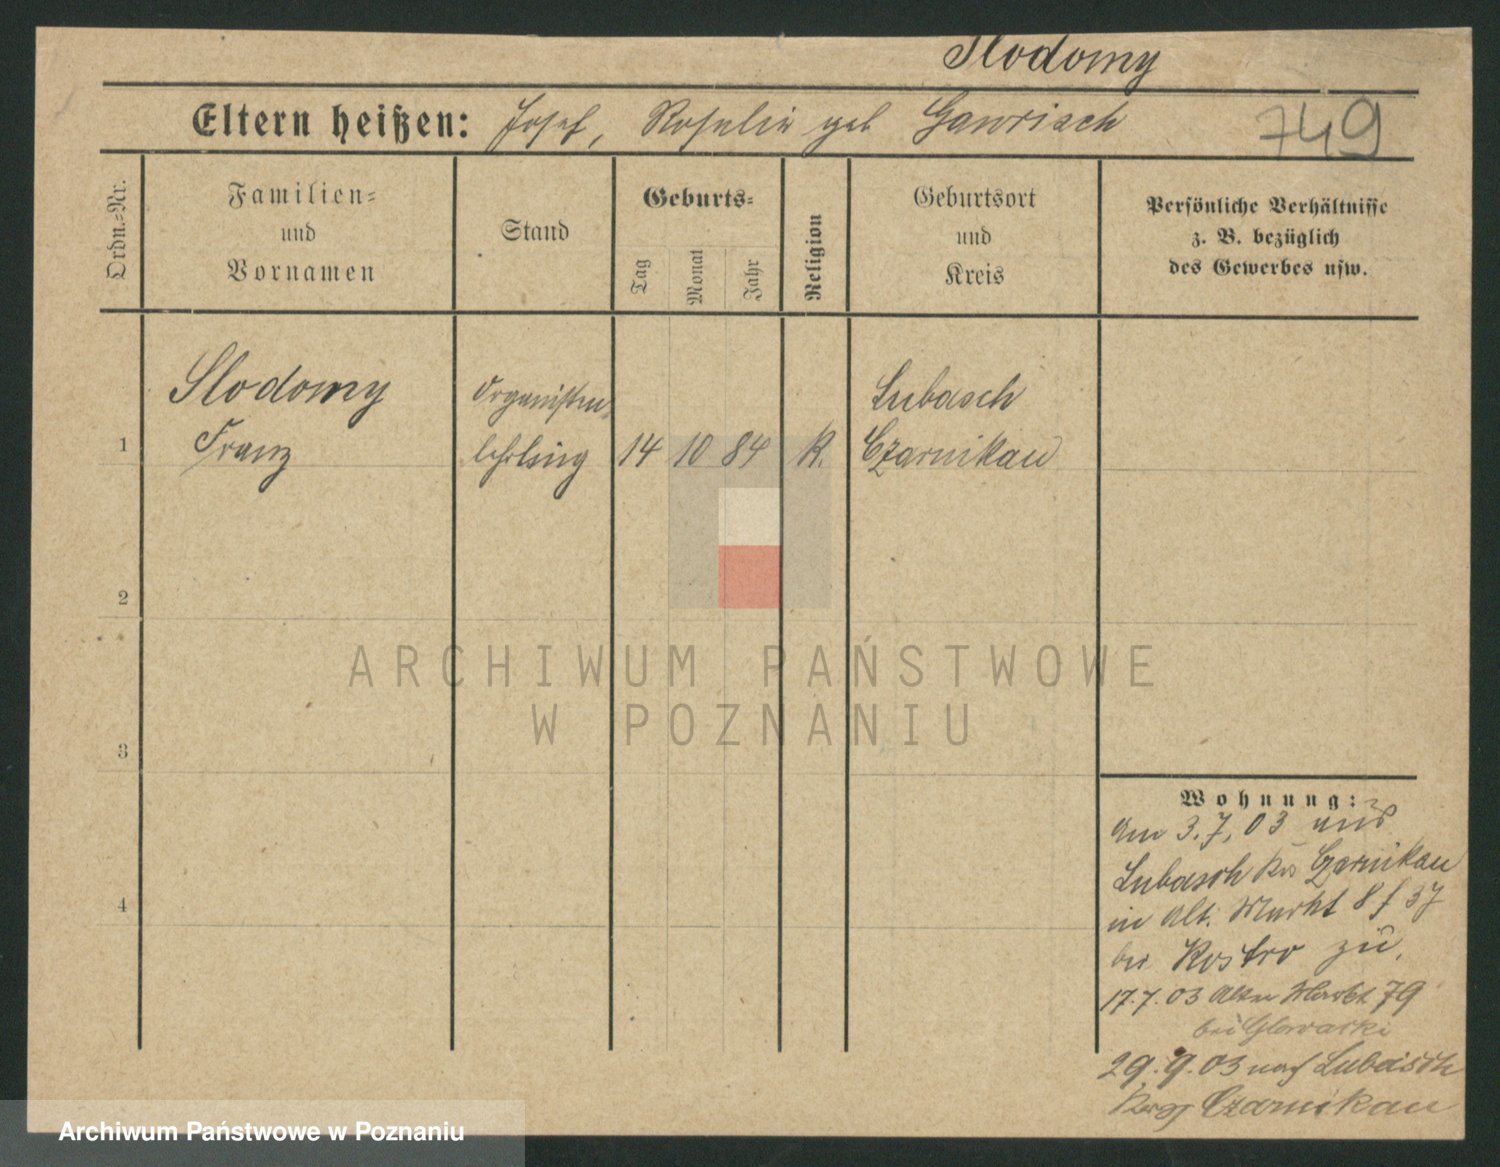 Slodomy
Eltern heißen: Josef, Rosalie geb Gawrisch
749
Ordn.=Nr.
Familien=
und
Vornamen
Stand
Geburts=
Tag
Monat
Jahr
Religion
Geburtsort
und
Kreis
Persönliche Verhältnisse
z. B. bezüglich
des Gewerbes usw.
1
Slodomy
Franz
Organisten
lehrling
14 10 84
K.
Lubasch
Czarnikau
2
3
4
ARCHIWUM PAŃSTWOWE
W POZNANIU
Wohnung:
Am 3.7.03 aus
Lubasch Krs Czarnikau
in Alt. Markt 8/37
bei Kostro zu.
17.7.03 Alter Markt 79
bei Glowacki
29.9.03 nach Lubasch
Czarnikau
Archiwum Państwowe w Poznaniu